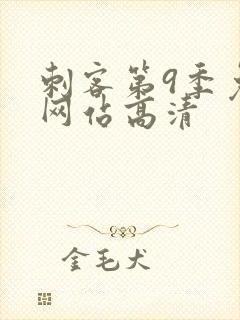 刺客第9季
网佔高清
金毛犬